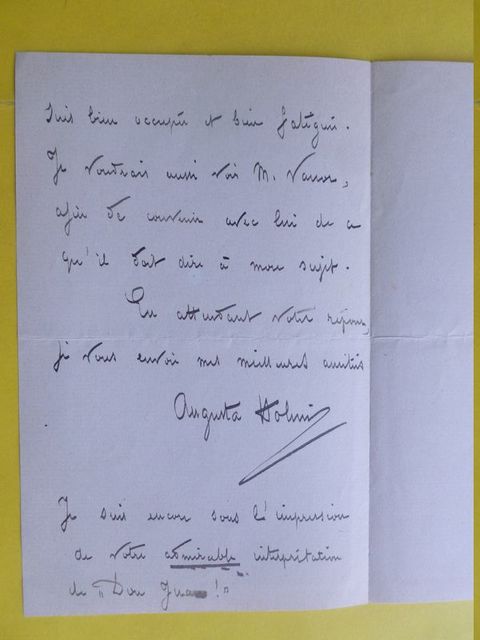 suis bien occupée et bien fatiguée.
Je voudrais aussi voir M. 
afin de convenir avec lui de ce
qu'il doit dire à mon sujet.
En attendant votre réponse,
je vous envoie mes meilleures amitiés
Augusta Holmès
Je suis encore sous l'impression
de votre admirable interprétation
de "Don Juan!"